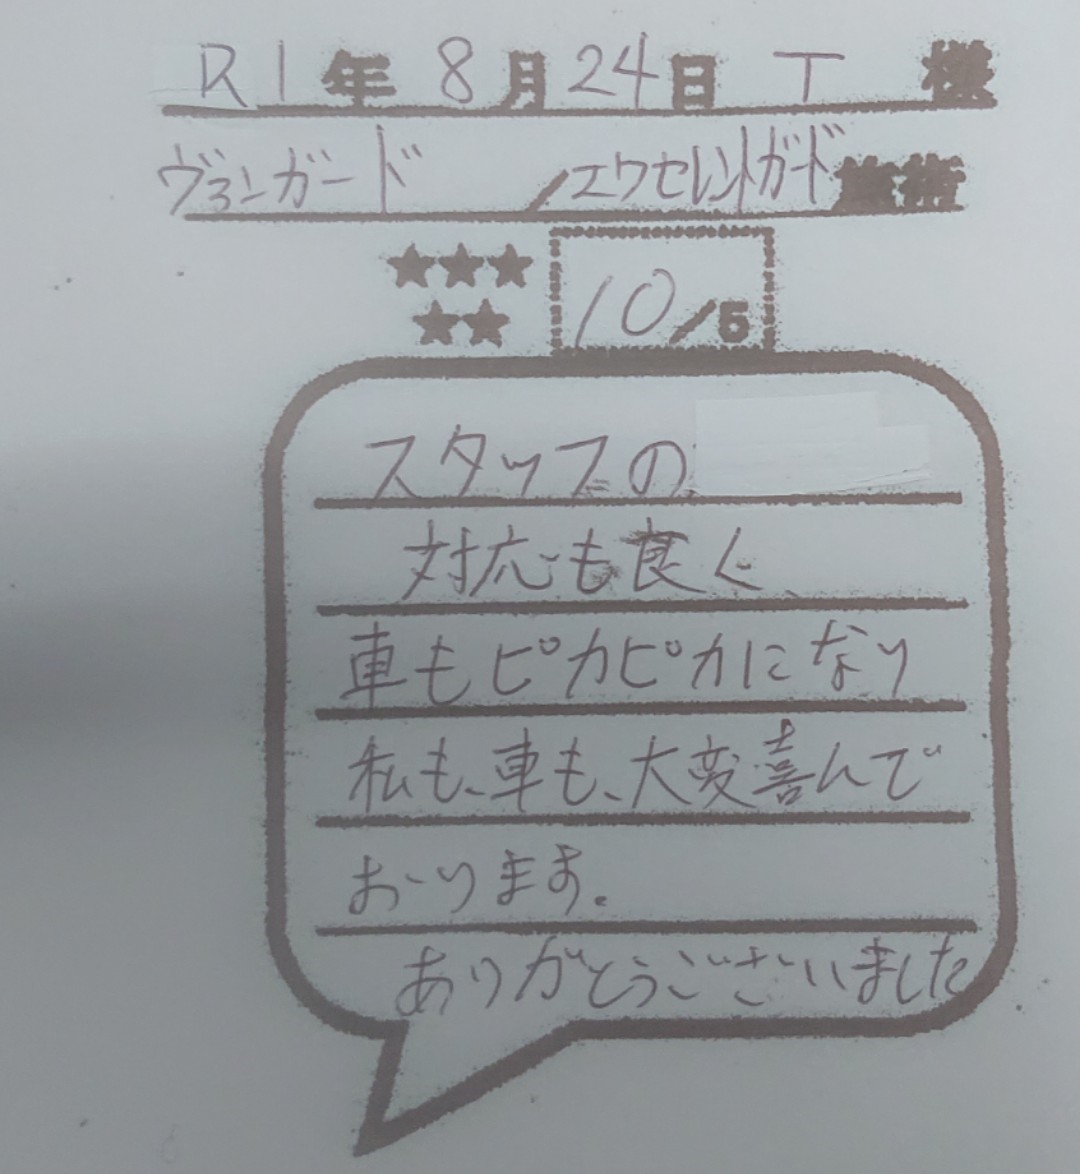 R1年 8月24日 T 様
ヴァンガード /エクセレントガード施術
★★★
★★ 10/5
スタッフの
対応も良く
車もピカピカになり
私も、車も、大変喜んで
おります。
ありがとうございました